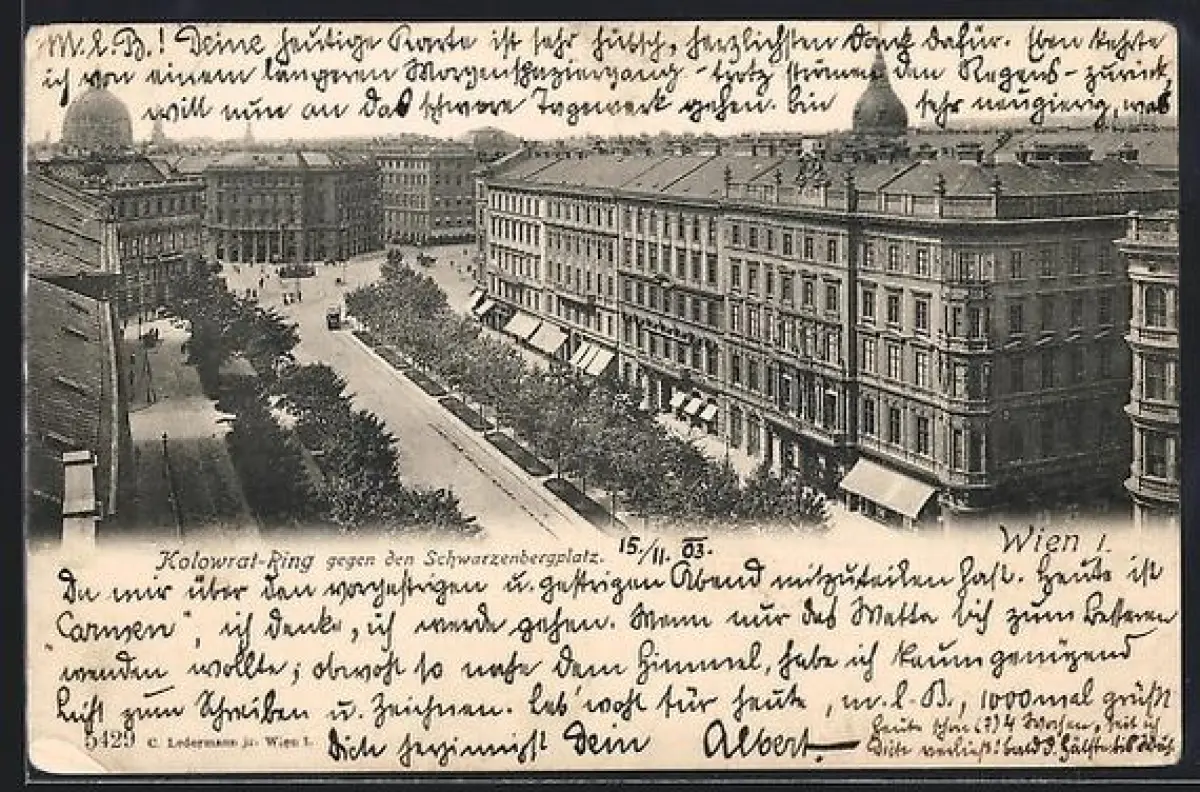 M. l. B.! Deine heutige Karte ist sehr hübsch, herzlichsten Dank dafür. Eben kehrte
ich von einem längeren Morgenspaziergang - trotz strömenden Regens - zurück,
will nun an das schwere Tagewerk gehen. bin sehr neugierig, was
Kolowrat-Ring gegen den Schwarzenbergplatz. 15./11. 03. Wien I.
Du mir über den vorgestrigen u. gestrigen Abend mitzuteilen hast. Heute ist
"Carmen", ich denke, ich werde gehen. Wenn nur das Wetter sich zum Besseren
wenden wollte; obwohl so nahe dem Himmel, habe ich kaum genügend
Licht zum Schreiben u. Zeichnen. Leb' wohl für heute, m. l. B., 1000mal grüßt
5429 C. Ledermann jr. Wien I.
Dich herzinnigst Dein Albert
Heute schon (?) 4 Wochen, seit ich
Dich verließ! bald d. Hälfte bis